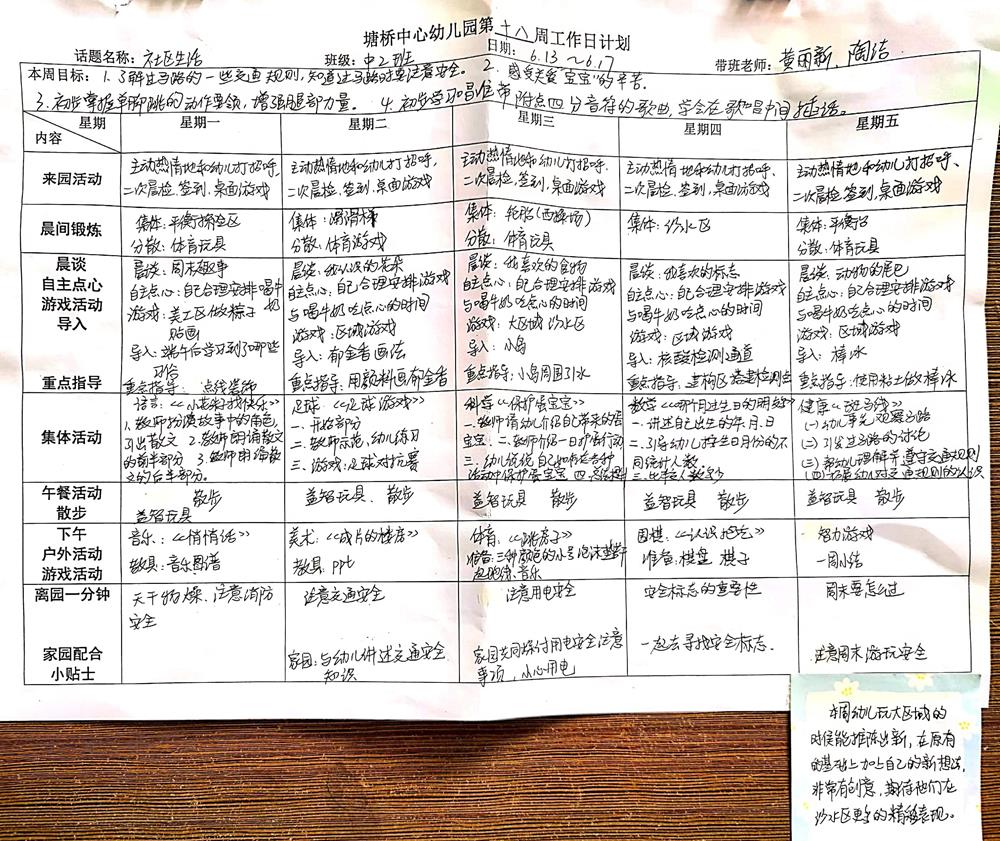 塘桥中心幼儿园第十八周工作日计划
话题名称：社区生活 班级：中2班 日期：6.13～6.17 带班老师：黄丽新、陶洁
本周目标：1.了解过马路的一些交通规则，知道过马路时要注意安全。2.感受关爱"宝宝"的辛苦。
3.初步掌握单脚跳的动作要领，增强腿部力量。 4.初步学习唱准带附点四分音符的歌曲，学会在歌唱中间插话。
星期 内容 星期一 星期二 星期三 星期四 星期五
来园活动
主动热情地和幼儿打招呼、
二次晨检，签到，桌面游戏
主动热情地和幼儿打招呼、
二次晨检、签到，桌面游戏
主动热情地和幼儿打招呼、
二次晨检，签到，桌面游戏
主动热情地和幼儿打招呼、
二次晨检、签到，桌面游戏
主动热情地和幼儿打招呼、
二次晨检，签到，桌面游戏
晨间锻炼
集体：平衡 区
分散：体育玩具
集体：滑滑梯
分散：体育游戏
集体：轮胎（西操场）
分散：体育玩具
集体：沙水区
集体：平衡
分散：体育玩具
晨谈
自主点心
游戏活动
导入
重点指导
晨谈：周末趣事
自主点心：自己合理安排喝牛奶
游戏：美工区做粽子
贴画
导入：端午后学习到了哪些
习俗
重点指导：点线装饰
晨谈：我认识的花朵
自主点心：自己合理安排游戏
与喝牛奶吃点心的时间
游戏：区域游戏
导入：郁金香画法
重点指导：用颜料画郁金香
晨谈：我喜欢的食物
自主点心：自己合理安排游戏
与喝牛奶吃点心的时间
游戏：大区域沙水区
导入：小岛
重点指导：小岛周围引水
晨谈：我喜欢的标志
自主点心：自己合理安排游戏
与喝牛奶吃点心的时间
游戏：区域游戏
导入：核酸检测通道
重点指导：建构区搭建检测点
晨谈：动物的尾巴
自主点心：自己合理安排游戏
与喝牛奶吃点心的时间
游戏：区域游戏
导入：棒冰
重点指导：使用粘土做棒冰
集体活动
语言：《小花籽找快乐》
1.教师扮演故事中的角色，
引出散文 2.教师朗诵散文
的前半部分 3.教师朗诵散
文的后半部分。
足球：《足球游戏》
一.开始部分
二.教师示范，幼儿练习
三.游戏：足球对抗赛
科学《保护蛋宝宝》
一.教师请幼儿介绍自己带来的蛋
宝宝 二.教师介绍一日护蛋行动
三.幼儿说说自己如何在各
活动中保护蛋宝宝 四.
数学《哪个月过生日的朋友多》
一.讲述自己出生的年.月.日
二.引导幼儿按生日月份的不
同统计人数
三.比率人数多少
健康《斑马线》
（一）幼儿事先观察马路
（二）引发过马路的讨论
（三）帮幼儿理解并遵守交通规则
（四）扩展幼儿对交通规则的认识
午餐活动
散步
散步
益智玩具
益智玩具、散步
益智玩具 散步
益智玩具 散步
益智玩具 散步
下午
户外活动
游戏活动
音乐：《悄悄话》
教具：音乐图谱
美术：《成片的楼房》
教具：ppt
体育：《跳房子》
准备：三种颜色的小号泡沫垫若干
音乐
围棋：《认识吃子》
准备：棋盘 棋子
智力游戏
一周小结
离园一分钟
天干物燥、注意消防
安全
注意交通安全
注意用电安全
安全标志的重要性
周末要怎么过
家园配合
小贴士
家园：与幼儿讲述交通安全
知识
家园共同探讨用电安全注意
事项，小心用电
一起去寻找安全标志。
注意周末游玩安全
本周幼儿玩大区域的
时候能推陈出新，在原有
的基础上加上自己的新想法，
非常有创意，期待他们在
沙水区更多的精彩表现。